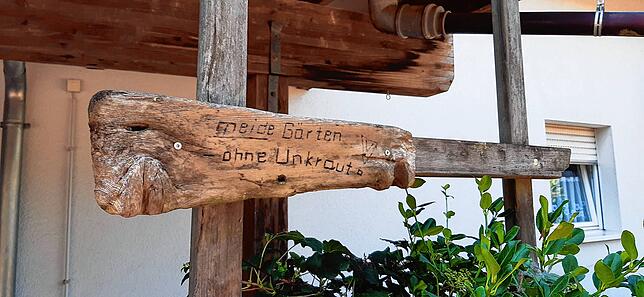 meide Gärten
ohne Unkraut.